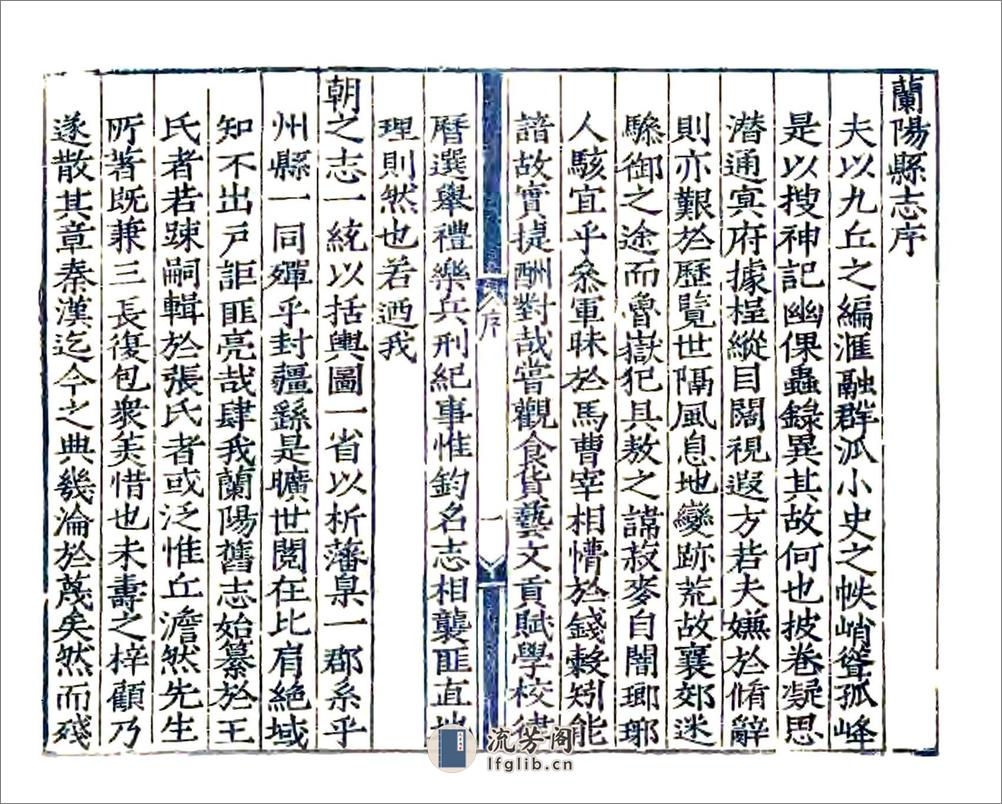 蘭陽縣志序
夫以九丘之編滙融群泒小史之帙峭聳孤峰
是以搜神記幽倮蟲錄異其故何也披卷凝思
潛通㝠府據桯縱目闊視遐方若夫嫌於脩辭
則亦艱於歷覽世隔風息地變跡荒故襄郊迷
驂御之途而魯嶽犯具敖之諱菽麥自闇瑯琊
人駭宜乎叅軍昧於馬曹宰相懵於錢穀矧能
諳故實捷酬對哉嘗觀食貨藝文貢賦學校
曆選舉禮樂兵刑紀事惟鈞名志相襲匪直地
理則然也若迺我
朝之志一統以括輿圖一省以析藩臬一郡系乎
州縣一同殫乎封疆繇是曠世閱在比肩絕域
知不出戶詎匪亮哉肆我蘭陽舊志始纂於王
氏者若踈嗣輯於張氏者或泛惟丘澹然先生
所著既兼三長復包衆美惜也未壽之梓顧乃
遂散其章秦漢迄今之典幾淪於蔑矣然而殘
序
一
流芳阁
lfglib.cn